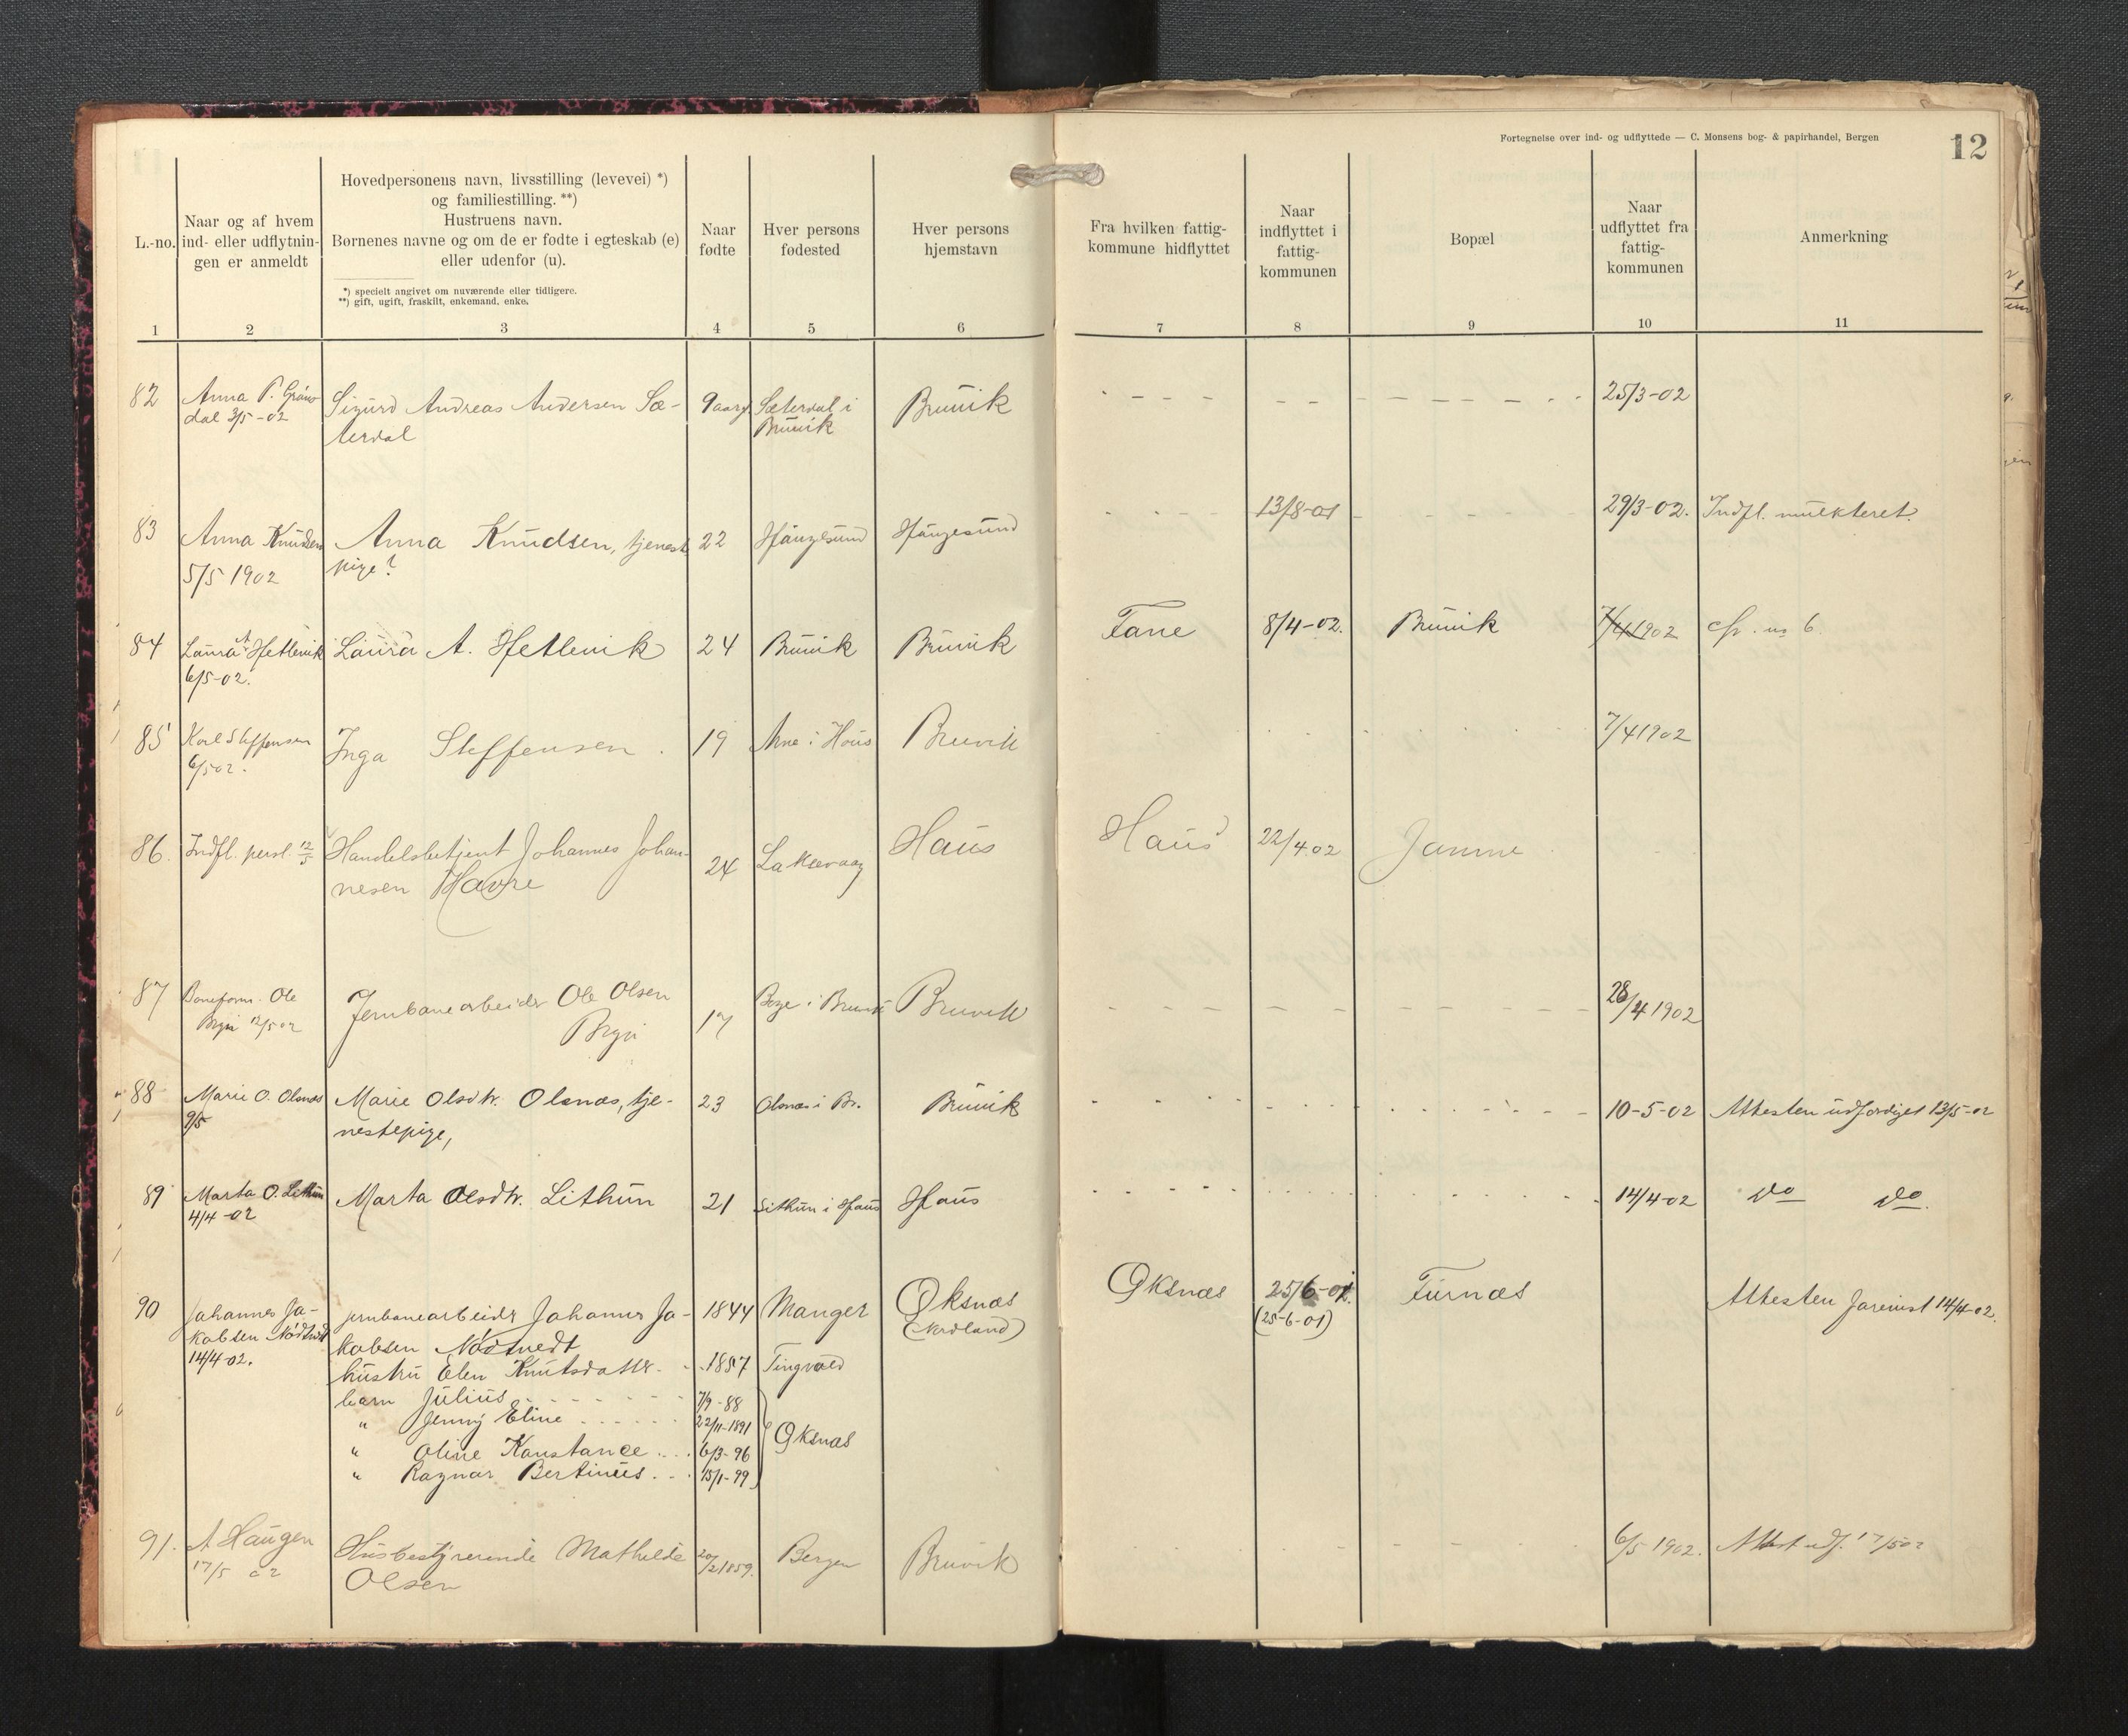 Fortegnelse over ind- og udflyttede — C. Monsens bog- & papirhandel, Bergen
12
L.-no.
Naar og af hvem
ind- eller udflytnin-
gen er anmeldt
Hovedpersonens navn, livsstilling (levevei) *)
og familiestilling. **)
Hustruens navn.
Børnenes navne og om de er fødte i egteskab (e)
eller udenfor (u).
*) specielt angivet om nuværende eller tidligere.
**) gift, ugift, fraskilt, enkemand, enke.
Naar
fødte
Hver persons
fødested
Hver persons
hjemstavn
Fra hvilken fattig-
kommune hidflyttet
Naar
indflyttet i
fattig-
kommunen
Bopæl
Naar
udflyttet fra
fattig-
kommunen
Anmerkning
1 2 3 4 5 6 7 8 9 10 11
82 Anna P. Sigurd Andreas Andersen Sæ- 9 aar Sæterdal i Bruvik 25/3-02
dal 3/5-02 terdal Bruvik
83 Anna Knudsen Anna Knudsen, tjeneste 22 Haugesund Haugesund 13/8-01 29/3-02. Indfl. mulkteret.
5/5 1902 pige?
84 Laura A. Hetlevik Laura A. Hetlevik 24 Bruvik Bruvik Fane 8/4-02. Bruvik 7/4 1902 cfr. no 6.
6/5-02.
85 Karl Steffensen Inga Steffensen. 19 Arne i Haus Bruvik 7/4 1902
6/5 02.
86. Indfl. persl. 12/5 Handelsbetjent Johannes Johan- 24 Laksevaag Haus Haus 22/4 02
nesen Havre
87 Baneform. Ole Jernbanearbeider Ole Olsen 17 i Bruvik Bruvik 28/4 1902
12/5 02
88 Marie O. Olsnæs Marie Olsdtr. Olsnæs, tje- 23 Olsnæs i Br. Bruvik 10-5-02 Attesten udfærdiget 13/5-02
9/5 nestepige,
89 Marta O. Lithun Marta Olsdtr. Lithun 21 Lithun i Haus Haus 14/4-02 do do.
4/4-02
90 Johannes Ja- jernbanearbeidr Johannes Ja- 1844 Manger Øksnæs Øksnæs 25/6-01. Turnæs Attesten 14/4-02.
kobsen Nødtvedt kobsen Nødtvedt (Nordland) (25-6-01)
14/4-02. hustru Elen Knutsdatter 1857 Tingvold
barn Julius 7/9-88
" Jenny Eline 22/11-1891 Øksnæs
" Oline Konstance 6/3-96
" Ragnar Bertinius 15/1-99
91. A Haugen Husbestyrerinde Mathilde 20/2 1859. Bergen Bruvik 6/5 1902. Attest udf. 17/5 02
17/5 02 Olsen